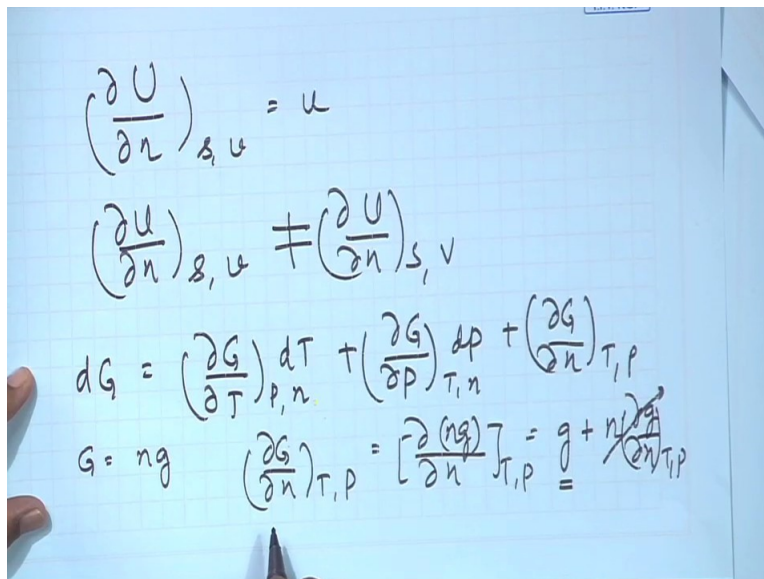 (∂U/∂n)s,v = u
(∂U/∂n)s,v ≠ (∂U/∂n)S,V
dG = (∂G/∂T)P,n dT + (∂G/∂P)T,n dp + (∂G/∂n)T,P
G = ng (∂G/∂n)T,P = [∂(ng)/∂n]T,P = g + n(∂g/∂n)T,P